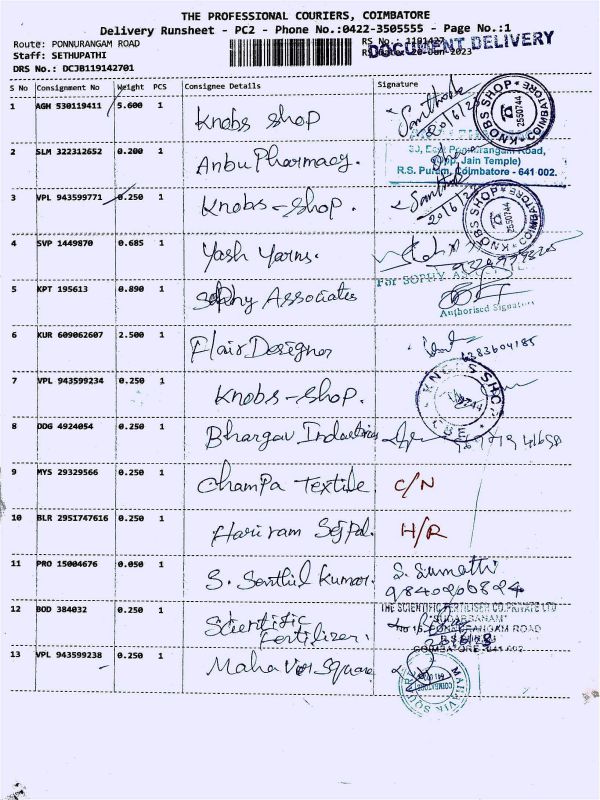 THE PROFESSIONAL COURIERS, COIMBATORE
Delivery Runsheet - PC2 - Phone No.:0422-3505555 - Page No.:1
Route: PONNURANGAM ROAD
RS No.: 1101427
DOCUMENT DELIVERY
Staff: SETHUPATHI
RS Date: 20-Jun-2023
DRS No.: DCJB119142701
S No Consignment No Weight PCS Consignee Details Signature
1 AGH 530119411 5.600 1 Knobs shop Santhosh 20/6/23
KNOBS SHOP COIMBATORE 2550744
2 SLM 322312652 0.200 1 Anbu Pharmacy.
Ponnurangam Road,
(Opp. Jain Temple)
R.S. Puram, Coimbatore - 641 002.
3 VPL 943599771 0.250 1 Knobs-shop. Santhosh 20/6/23
KNOBS SHOP COIMBATORE 2550744
4 SVP 1449870 0.685 1 Yash Yarns.
5 KPT 195613 0.890 1 Sophy Associates
For SOPHY
Authorised Signatory
6 KUR 609062607 2.500 1 Flair Designer
6383604185
7 VPL 943599234 0.250 1 Knobs-shop.
KNOBS SHOP CBE
8 DDG 4924054 0.250 1 Bhargav Industries
9 MYS 29329566 0.250 1 Champa Textile. C/N
10 BLR 2951747616 0.250 1 Hariram Sejpal. H/R
11 PRO 15004676 0.050 1 S. Senthil Kumar. S. Sumathi
9840266824
12 BOD 384032 0.250 1 Scientific Fertilizer.
THE SCIENTIFIC FERTILISER CO.PRIVATE LTD
"SUDARSANAM"
PONNURANGAM ROAD
COIMBATORE-641 002
13 VPL 943599238 0.250 1 Mahaveer Square
MAHAVIR SQUARE COIMBATORE